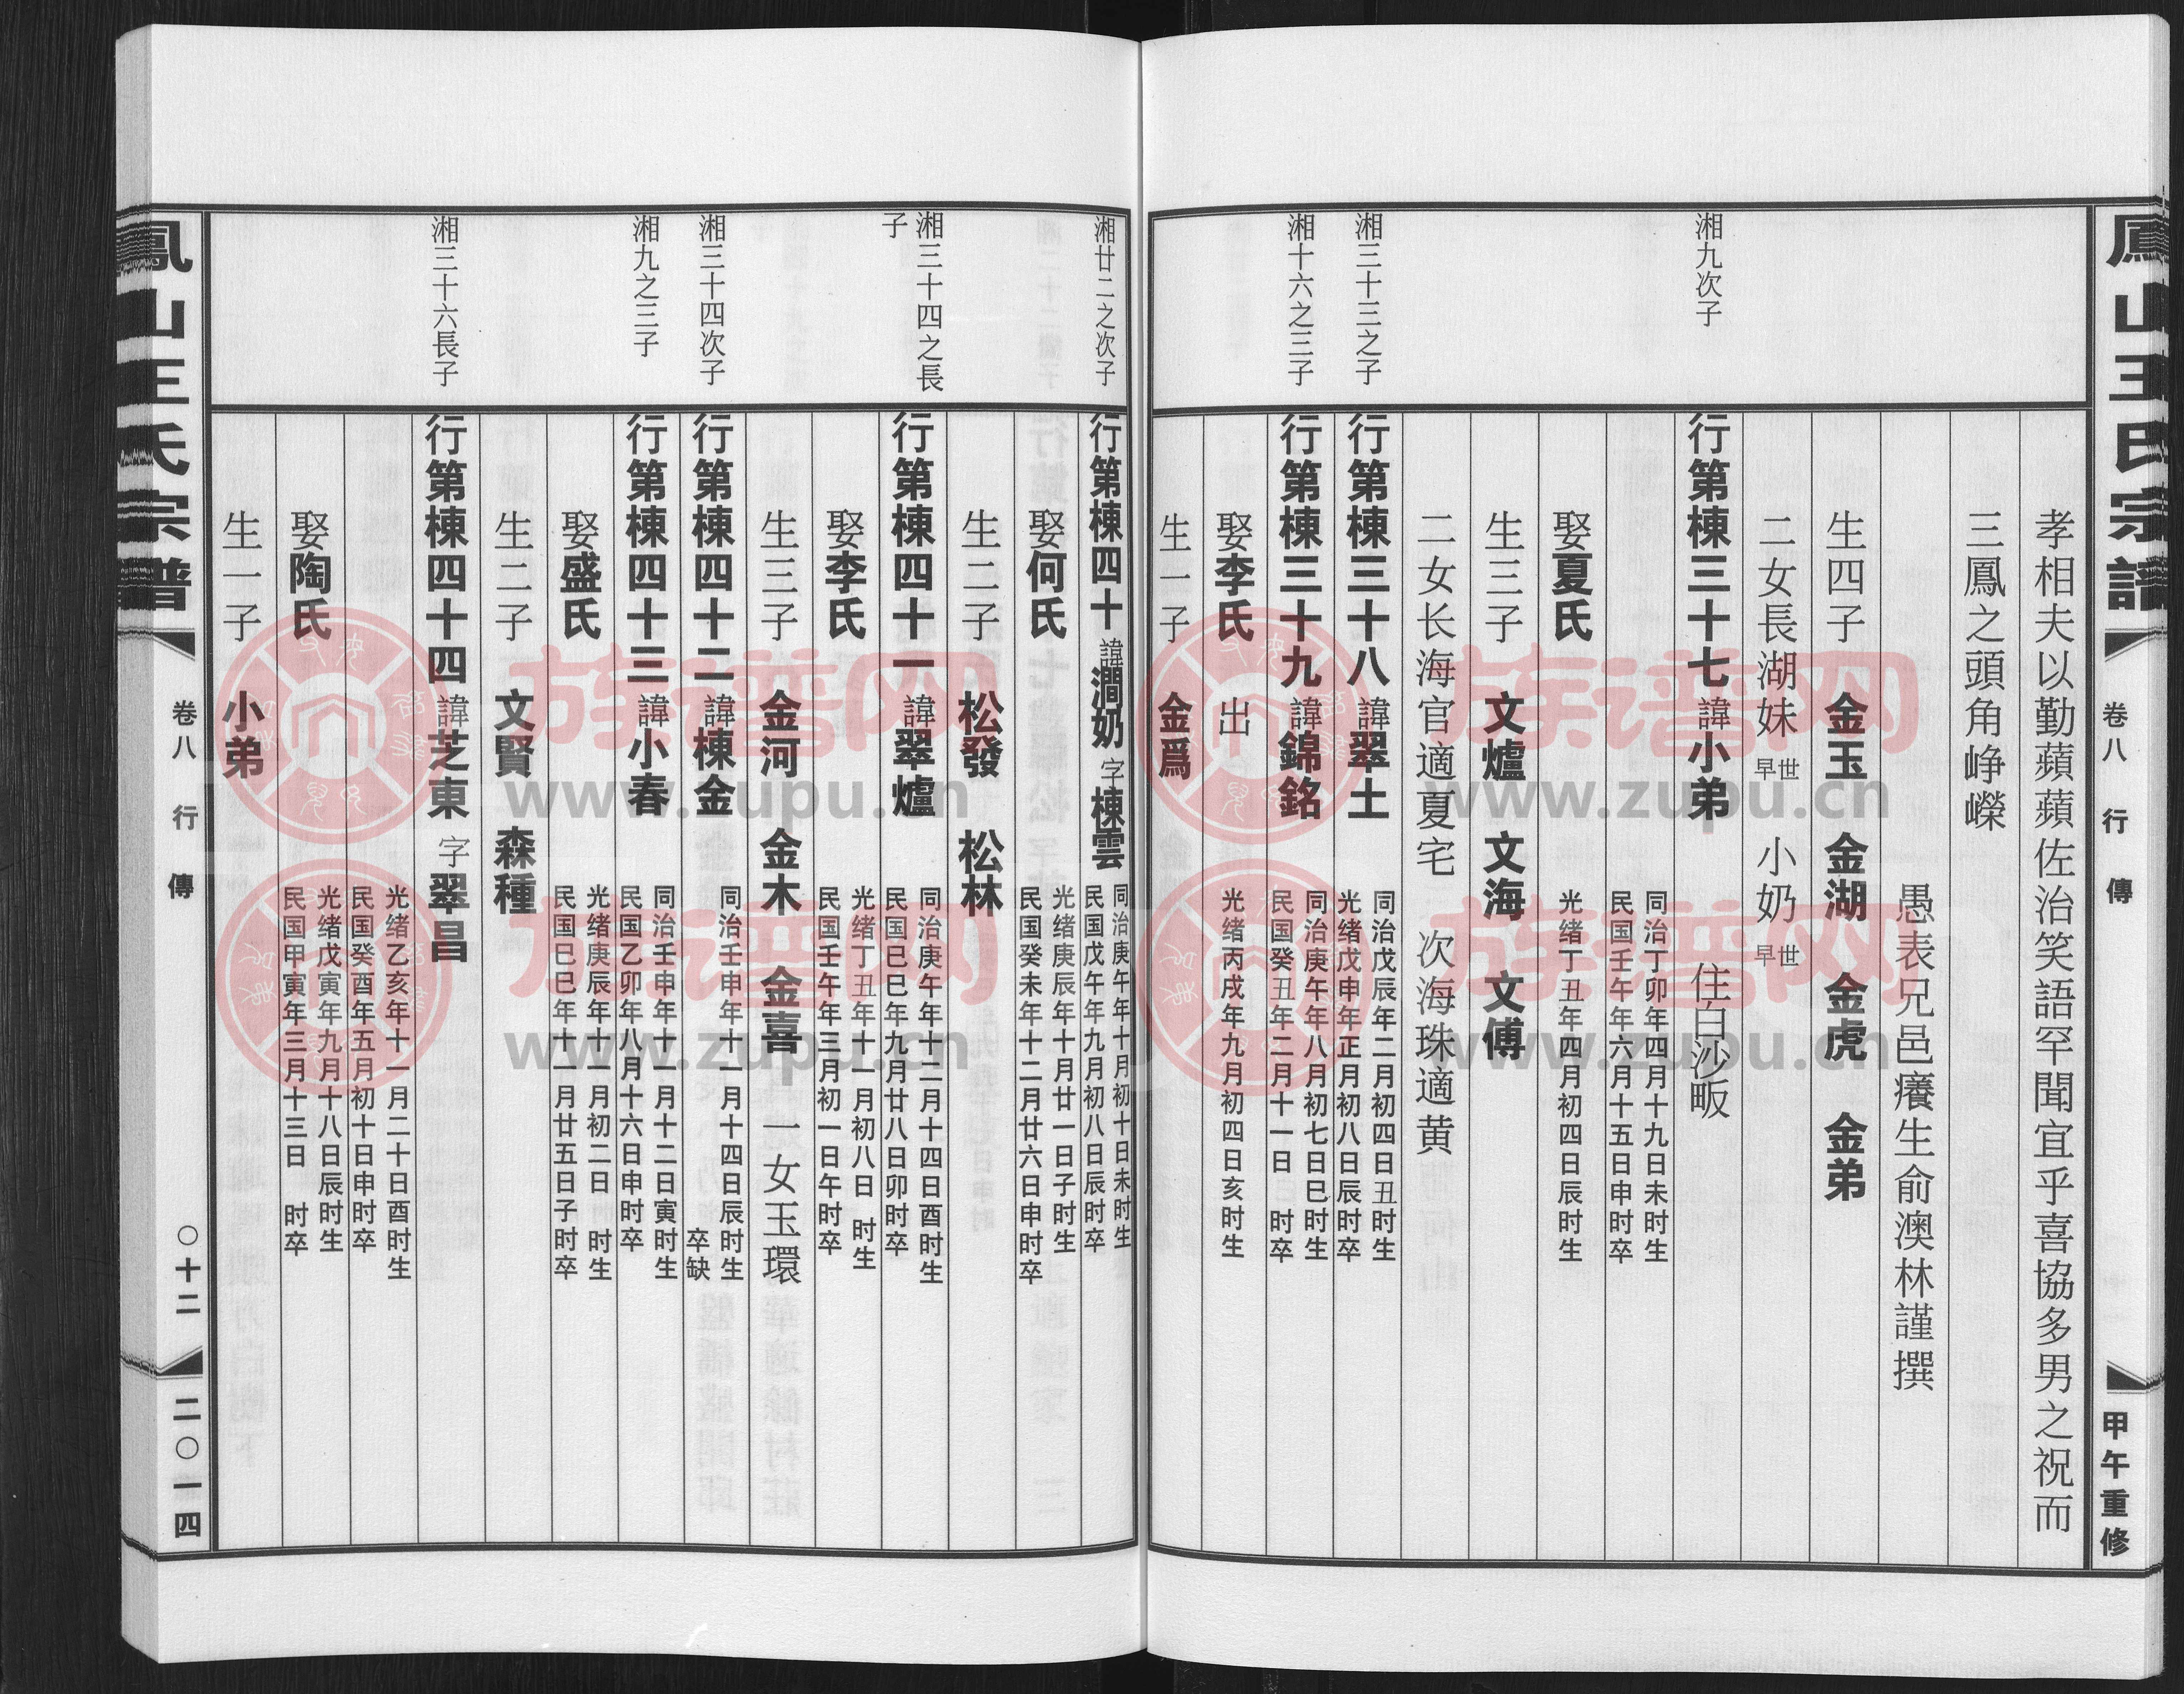 鳳山王氏宗譜
卷八 行 傳
甲午重修
孝相夫以勤蘋蘋佐治笑語罕聞宜乎喜協多男之祝而
三鳳之頭角崢嶸
愚表兄邑癢生俞澳林謹撰
生四子 金玉 金湖 金虎 金弟
二女長湖妹 早世 小奶 早世
湘九次子
行第棟三十七 諱 小弟 住白沙畈
同治丁卯年四月十九日未时生
民国壬午年六月十五日申时卒
娶夏氏 光绪丁丑年四月初四日辰时生
生三子 文爐 文海 文傅
二女长海官適夏宅 次海珠適黄
湘三十三之子
行第棟三十八 諱 翠土
同治戊辰年二月初四日丑时生
光绪戊申年正月初八日辰时卒
湘十六之三子
行第棟三十九 諱 錦銘
同治庚午年八月初七日巳时生
民国癸丑年二月十一日 时卒
娶李氏 出 光绪丙戌年九月初四日亥时生
生一子 金爲
湘廿二之次子
行第棟四十 諱 澗奶 字 棟雲
同治庚午年十月初十日未时生
民国戊午年九月初八日辰时卒
娶何氏
光绪庚辰年十月廿一日子时生
民国癸未年十二月廿六日申时卒
生二子 松發 松林
湘三十四之長
子
行第棟四十一 諱 翠爐
同治庚午年十二月十四日酉时生
民国巳巳年九月廿八日卯时卒
娶李氏
光绪丁丑年十一月初八日 时生
民国壬午年三月初一日午时卒
生三子 金河 金木 金喜 一女玉環
湘三十四次子
行第棟四十二 諱 棟金
同治壬申年十一月十四日辰时生
卒缺
湘九之三子
行第棟四十三 諱 小春
同治壬申年十一月十二日寅时生
民国乙卯年八月十六日申时卒
娶盛氏
光绪庚辰年十一月初二日 时生
民国巳巳年十一月廿五日子时卒
生二子 文賢 森種
湘三十六長子
行第棟四十四 諱 芝東 字 翠昌
光绪乙亥年十一月二十日酉时生
民国癸酉年五月初十日申时卒
娶陶氏
光绪戊寅年九月十八日辰时生
民国甲寅年三月十三日 时卒
生一子 小弟
鳳山王氏宗譜
卷八 行 傳
〇十二
二〇一四
族谱网
www.zupu.cn
族谱网
www.zupu.cn
族谱网
www.zupu.cn
族谱网
www.zupu.cn